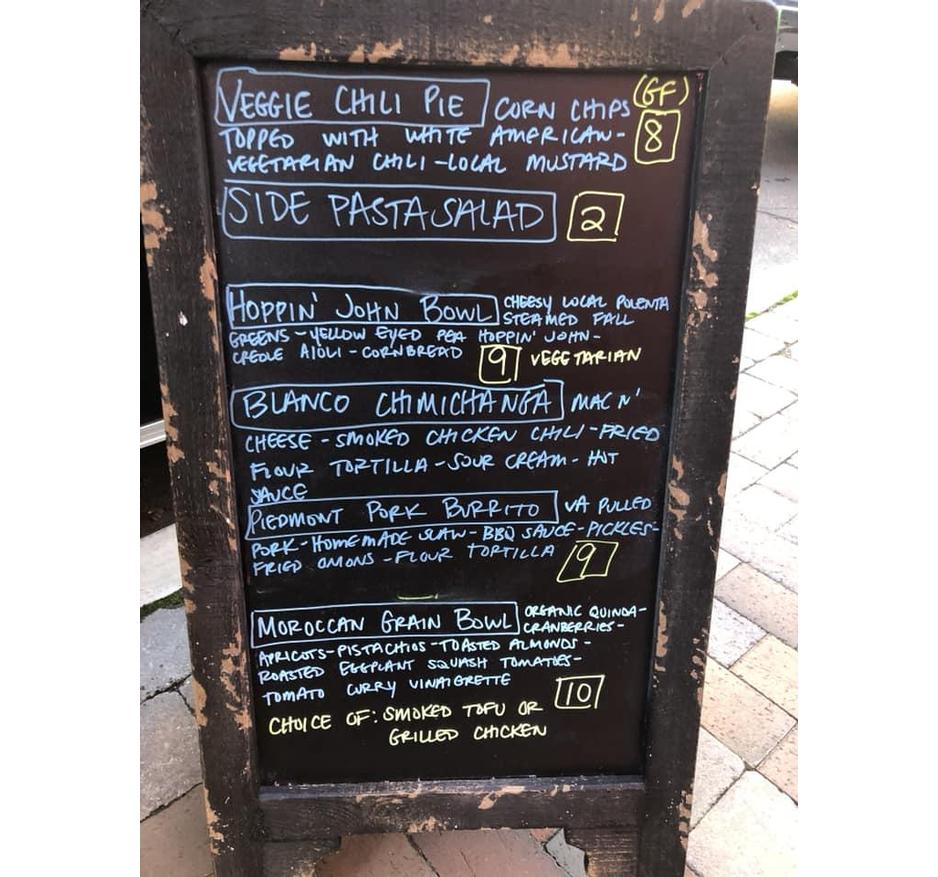 VEGGIE CHILI PIE CORN CHIPS (GF)
TOPPED WITH WHITE AMERICAN- 8
VEGETARIAN CHILI-LOCAL MUSTARD
SIDE PASTA SALAD 2
HOPPIN' JOHN BOWL CHEESY LOCAL POLENTA
STEAMED FALL
GREENS-YELLOW EYED PEA HOPPIN' JOHN-
CREOLE AIOLI-CORNBREAD 9 VEGETARIAN
BLANCO CHIMICHANGA MAC N'
CHEESE-SMOKED CHICKEN CHILI-FRIED
FLOUR TORTILLA-SOUR CREAM-HOT
SAUCE
PIEDMONT PORK BURRITO VA PULLED
PORK-HOMEMADE SLAW-BBQ SAUCE-PICKLES-
FRIED ONIONS-FLOUR TORTILLA 9
MOROCCAN GRAIN BOWL ORGANIC QUINOA-
CRANBERRIES-
APRICOTS-PISTACHIOS-TOASTED ALMONDS-
ROASTED EGGPLANT SQUASH TOMATOES-
TOMATO CURRY VINAIGRETTE 10
CHOICE OF: SMOKED TOFU OR
GRILLED CHICKEN